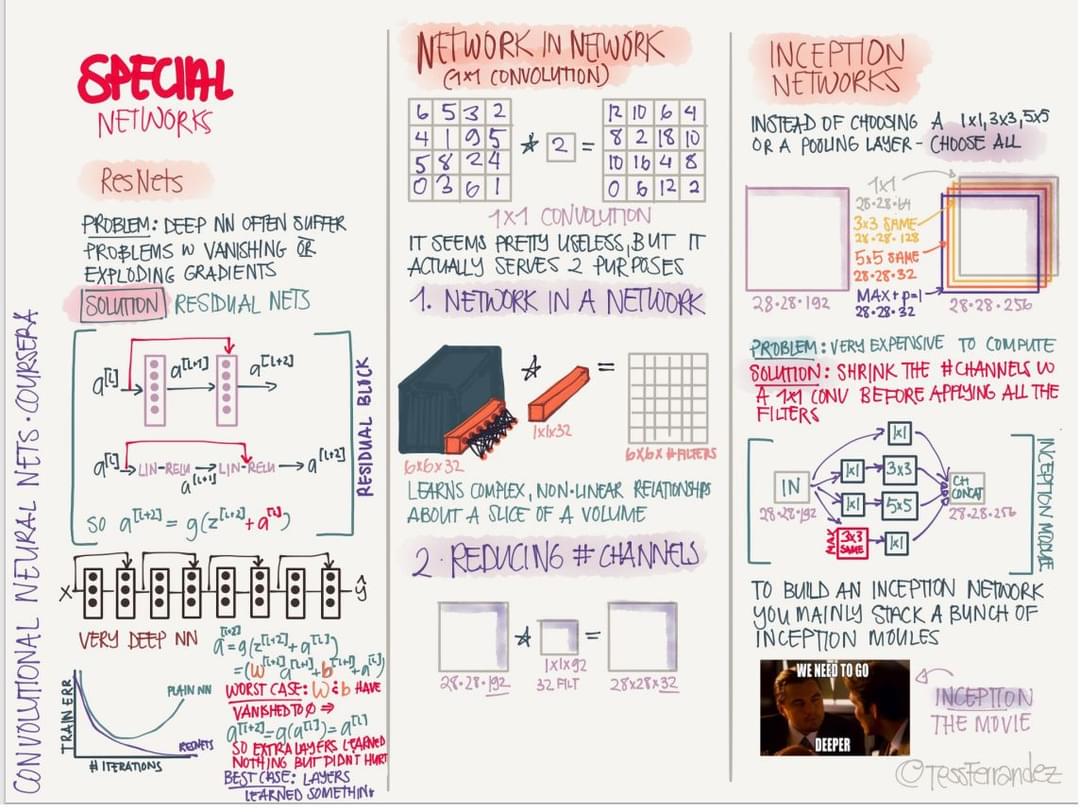 CONVOLUTIONAL NEURAL NETS · COURSERA
SPECIAL
NETWORKS
ResNets
PROBLEM: DEEP NN OFTEN SUFFER
PROBLEMS W VANISHING OR
EXPLODING GRADIENTS
SOLUTION RESIDUAL NETS
a[l] a[l+1] a[l+2]
a[l] LIN-RELU → LIN-RELU → a[l+2]
a[l+1]
SO a[l+2] = g(z[l+2] + a[l])
RESIDUAL BLOCK
X ŷ
VERY DEEP NN
a[l+2] = g(z[l+2] + a[l])
= (W[l+2] a[l+1] + b[l+2] + a[l])
WORST CASE: W & b HAVE
VANISHED TO 0 ⇒
a[l+2] = g(a[l]) = a[l]
SO EXTRA LAYERS LEARNED
NOTHING BUT DIDN'T HURT
BEST CASE: LAYERS
LEARNED SOMETHING
TRAIN ERR
PLAIN NN
RESNETS
# ITERATIONS
NETWORK IN NETWORK
(1x1 CONVOLUTION)
6 5 3 2
4 1 9 5
5 8 2 4
0 3 6 1
* 2 =
12 10 6 4
8 2 18 10
10 16 4 8
0 6 12 2
1x1 CONVOLUTION
IT SEEMS PRETTY USELESS, BUT IT
ACTUALLY SERVES 2 PURPOSES
1. NETWORK IN A NETWORK
* =
1x1x32
6x6x32
6x6x #FILTERS
LEARNS COMPLEX, NON-LINEAR RELATIONSHIPS
ABOUT A SLICE OF A VOLUME
2. REDUCING # CHANNELS
* =
1x1x92
28·28·192 32 FILT 28x28x32
INCEPTION
NETWORKS
INSTEAD OF CHOOSING A 1x1, 3x3, 5x5
OR A POOLING LAYER - CHOOSE ALL
1x1
28·28·64
3x3 SAME
28·28·128
5x5 SAME
28·28·32
MAX + p=1
28·28·32
28·28·192
28·28·256
PROBLEM: VERY EXPENSIVE TO COMPUTE
SOLUTION: SHRINK THE #CHANNELS W
A 1x1 CONV BEFORE APPLYING ALL THE
FILTERS
1x1
IN 1x1 3x3 CH
CONCAT
28·28·192 1x1 5x5 28·28·256
MAX 3x3
SAME 1x1
INCEPTION MODULE
TO BUILD AN INCEPTION NETWORK
YOU MAINLY STACK A BUNCH OF
INCEPTION MOULES
WE NEED TO GO
DEEPER
INCEPTION
THE MOVIE
©TessFerrandez